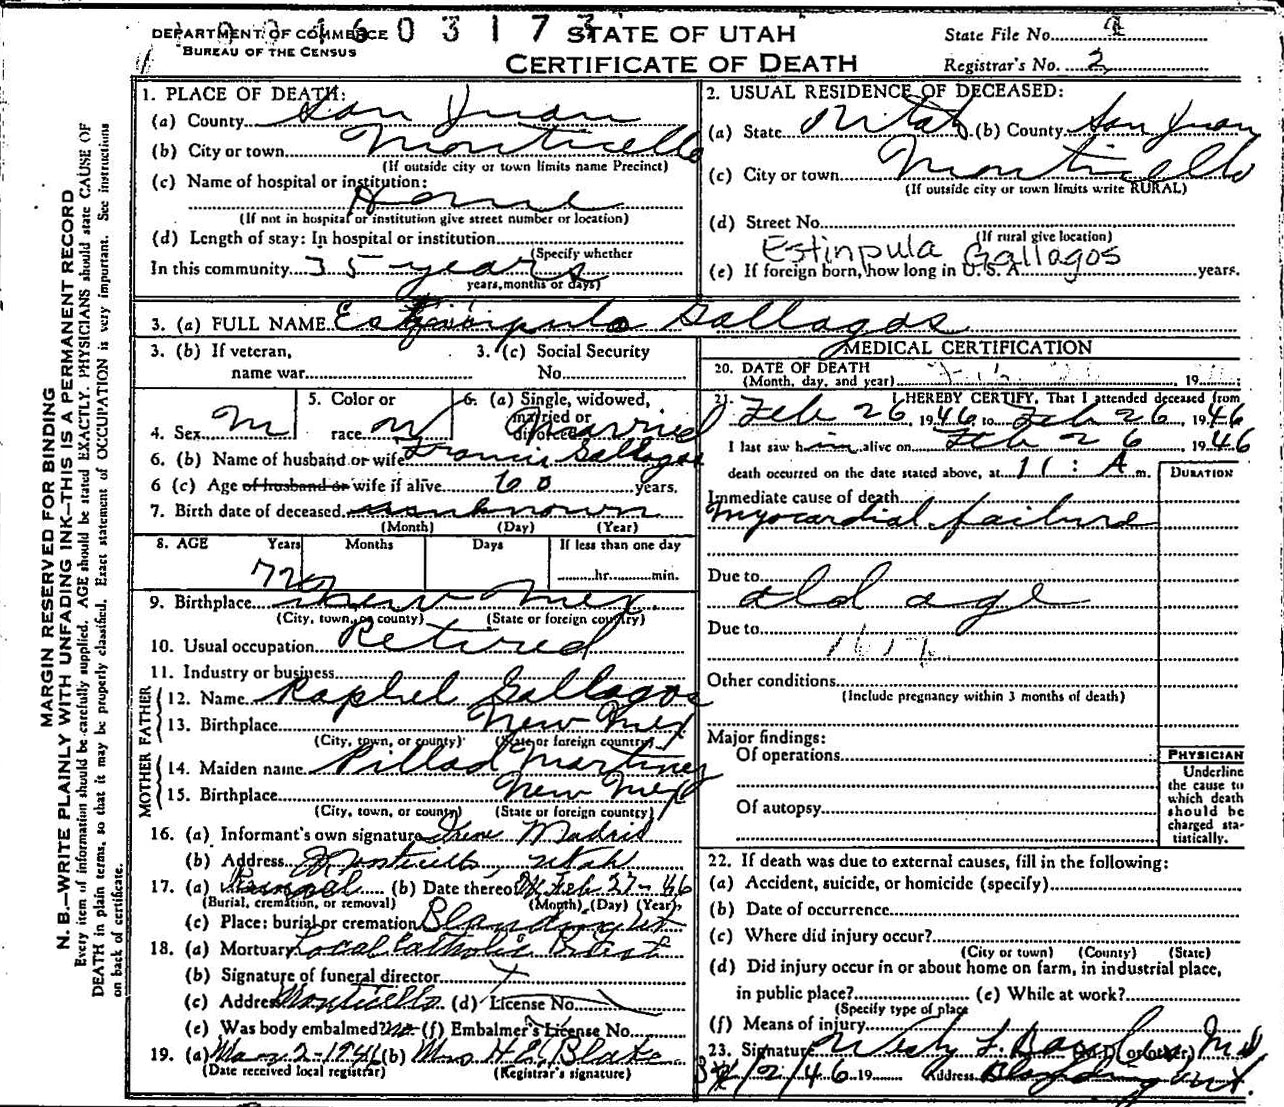 DEPARTMENT OF COMMERCE
BUREAU OF THE CENSUS
0 3 1 7 3
STATE OF UTAH
CERTIFICATE OF DEATH
State File No.
Registrar's No. 2
MARGIN RESERVED FOR BINDING
N. B.—WRITE PLAINLY WITH UNFADING INK—THIS IS A PERMANENT RECORD
Every item of information should be carefully supplied. AGE should be stated EXACTLY. PHYSICIANS should state CAUSE OF
DEATH in plain terms, so that it may be properly classified. Exact statement of OCCUPATION is very important. See instructions
on back of certificate.
1. PLACE OF DEATH:
(a) County San Juan
(b) City or town Monticello
(If outside city or town limits name Precinct)
(c) Name of hospital or institution:
Home
(If not in hospital or institution give street number or location)
(d) Length of stay: In hospital or institution
(Specify whether
In this community 35 years
years, months or days)
2. USUAL RESIDENCE OF DECEASED:
(a) State Utah (b) County San Juan
(c) City or town Monticello
(If outside city or town limits write RURAL)
(d) Street No.
(If rural give location)
Estinpula Gallagos
(e) If foreign born, how long in U. S. A. years.
3. (a) FULL NAME Gallagos
3. (b) If veteran,
name war
3. (c) Social Security
No.
4. Sex M
5. Color or
race
6. (a) Single, widowed,
married or
divorced Married
6. (b) Name of husband or wife Francis Gallagos
6 (c) Age of husband or wife if alive 60 years.
7. Birth date of deceased unknown
(Month) (Day) (Year)
8. AGE Years Months Days If less than one day
72 hr. min.
9. Birthplace New Mex.
(City, town, or county) (State or foreign country)
10. Usual occupation Retired
11. Industry or business
FATHER
12. Name Raphel Gallagos
13. Birthplace New Mex
(City, town, or county) (State or foreign country)
MOTHER
14. Maiden name Pillad Martinez
15. Birthplace New Mex
(City, town, or county) (State or foreign country)
16. (a) Informant's own signature Irene Madrid
(b) Address Monticello, Utah
17. (a) (b) Date thereof Feb 27-46
(Burial, cremation, or removal) (Month) (Day) (Year)
(c) Place: burial or cremation Blanding Ut
18. (a) Mortuary Local Catholic Priest
(b) Signature of funeral director
(c) Address Monticello (d) License No.
(e) Was body embalmed? no (f) Embalmer's License No.
19. (a) Mar 2-1946 (b) Mrs H.E. Blake
(Date received local registrar) (Registrar's signature)
MEDICAL CERTIFICATION
20. DATE OF DEATH
(Month, day, and year) , 19 ;
21. I HEREBY CERTIFY, That I attended deceased from
Feb 26, 1946, to Feb 26, 1946
I last saw him alive on Feb 26 1946
death occurred on the date stated above, at 11: A m.
DURATION
Immediate cause of death
Myocardial failure
Due to
old age
Due to
Other conditions
(Include pregnancy within 3 months of death)
Major findings:
Of operations
Of autopsy
PHYSICIAN
Underline
the cause to
which death
should be
charged sta-
tistically.
22. If death was due to external causes, fill in the following:
(a) Accident, suicide, or homicide (specify)
(b) Date of occurrence
(c) Where did injury occur?
(City or town) (County) (State)
(d) Did injury occur in or about home on farm, in industrial place,
in public place? (e) While at work?
(Specify type of place
(f) Means of injury
23. Signature (M.D. or other) Md
/2/46 19 Address Blanding Ut.